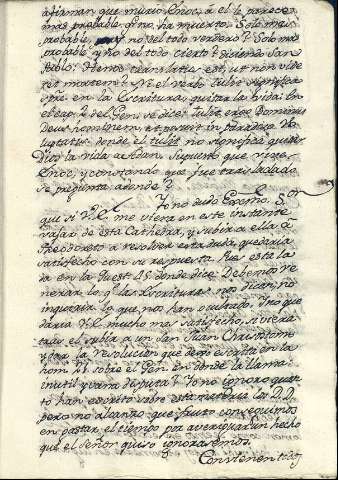 afirman que murio Enoc, a el le parece
mas probable q.e no ha muerto. Solo mas
probable, y no del todo verdero? Solo mas
probable y no del todo cierto? diciendo San
Pablo: Henoc translatus est, ut non vide
ret mortem? Ni el verbo tulit significa
spre en la Escritura quitar la vida: En
el cap. 2 del Gen. se dice: tulit ergo Dominus
Deus hominem, et posuit in paradiso Vo
luptatis: donde el tulit no significa quitar
Dios la vida a Adan. Supuesto que vive
Enoc, y constando que fue trasladado
se pregunta adonde?
Yo no dudo Excmo. S.or
que si V.E. me viera en este instante
vajar de esta Cathedra, y subir a ella á
Theodoreto a resolver esta duda, quedaria
satisfecho con su respuesta. Pues esta la
da en la Quest. 45 donde dice: Debemos ve
nerar lo q.e las Escrituras nos dicen, no
inquirir lo que nos han ocultado. Y no que
daria V.E. mucho mas satisfecho, si viera
tras el subir a un San Juan Chrisostomo
y dar la resolucion que dejó escrita en la
hom. 21 sobre el Gen. en donde la llama
inutil y vana disputa? Yo no ignoro quan
to han escrito sobre esta materia los D.D.
pero no alcanzo que fruto conseguimos
en gastar el tiempo por averiguar un hecho
que el Señor quiso ignorasemos.